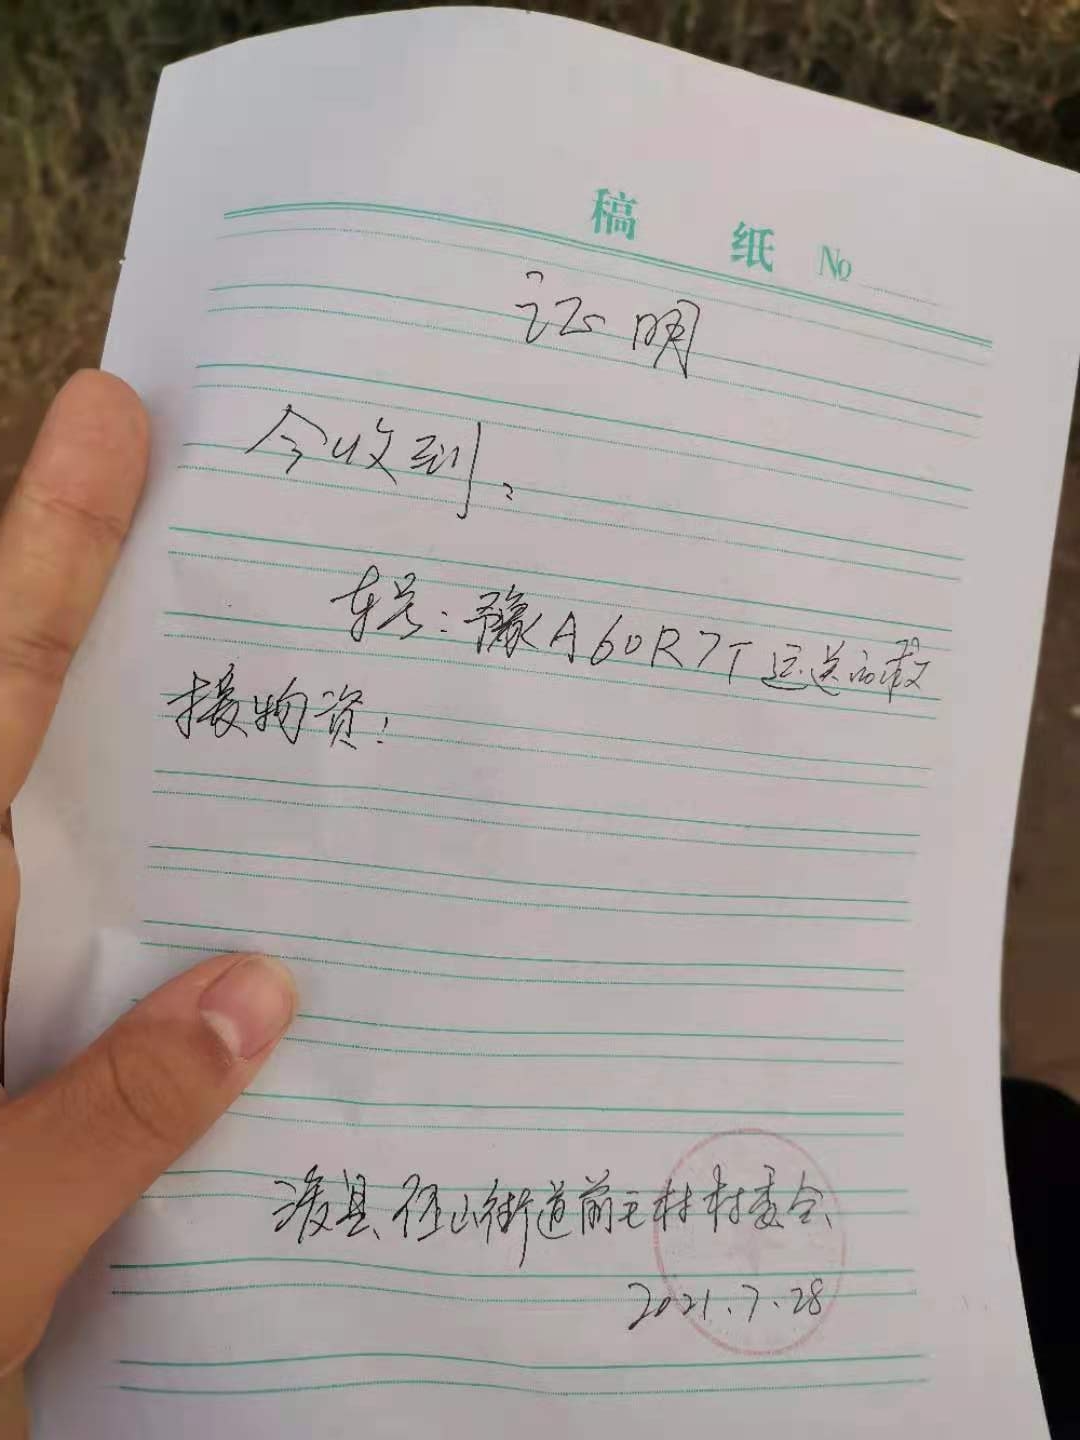 稿 纸 No
证明
今收到:
车号:豫A60R7T运送的救
援物资!
浚县伾山街道前毛村村委会
2021.7.28